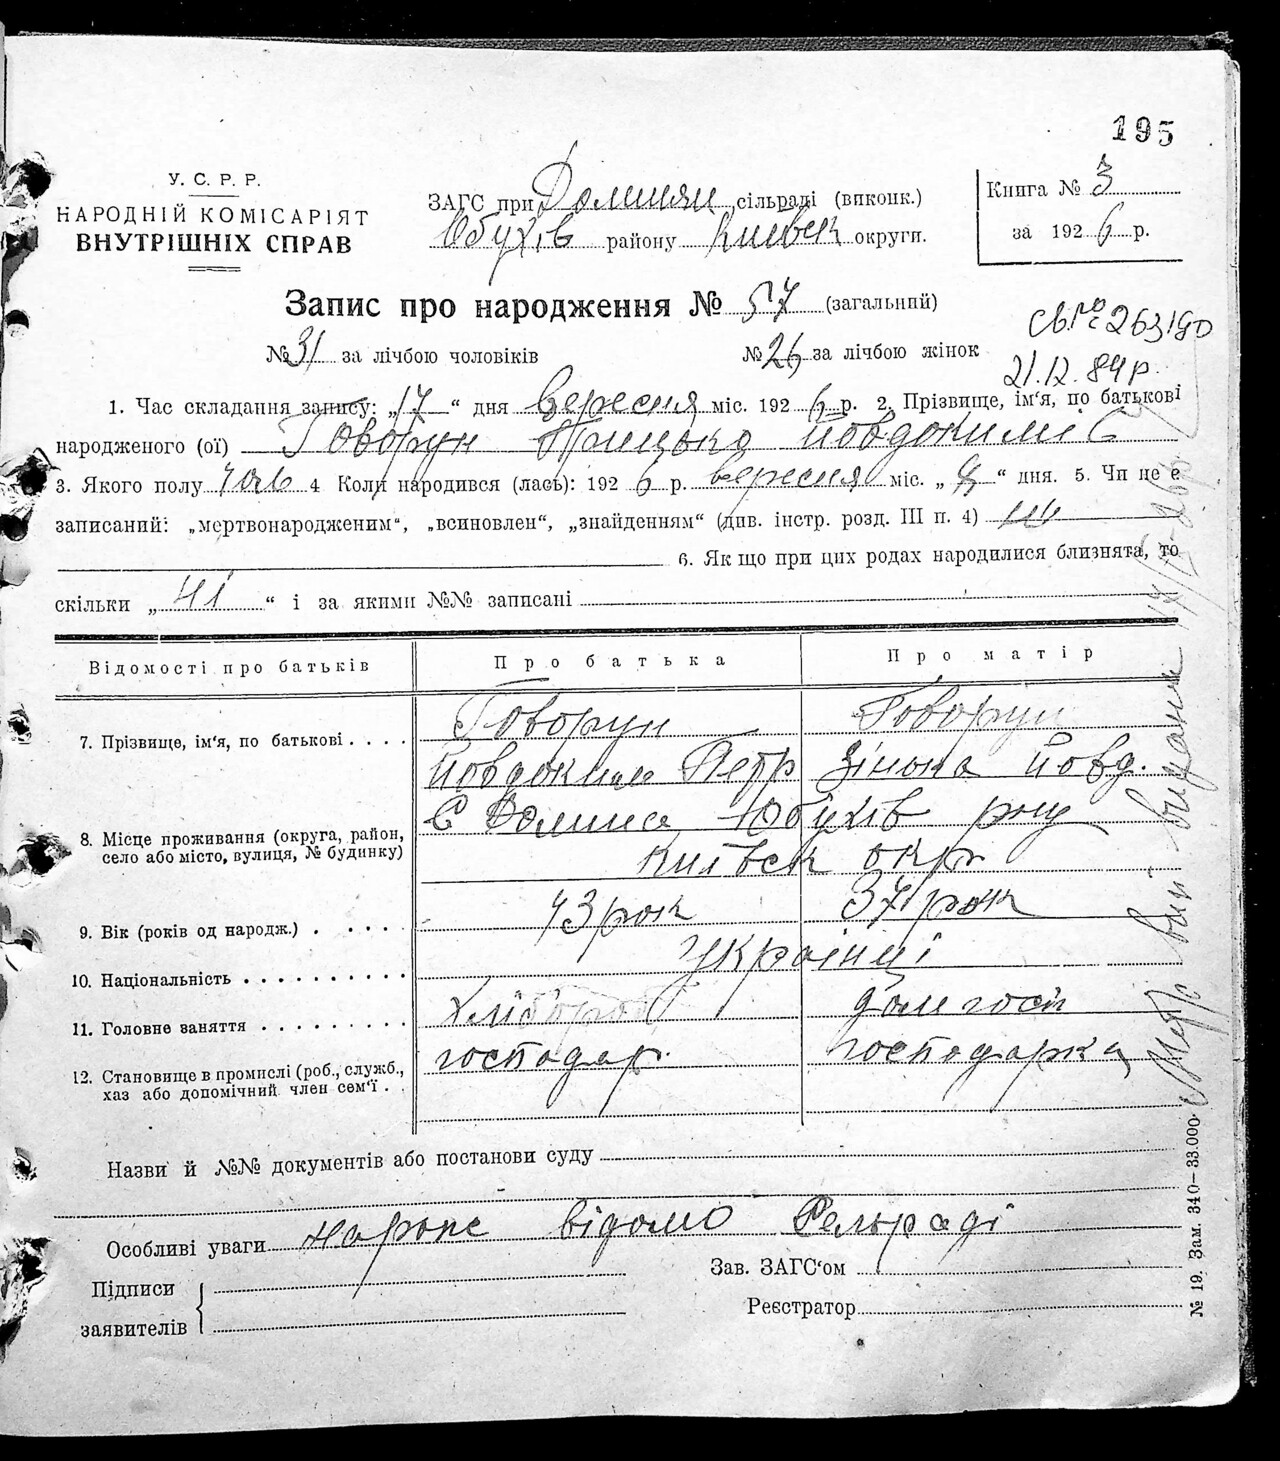 195
У. С. Р. Р.
НАРОДНІЙ КОМІСАРІЯТ
ВНУТРІШНІХ СПРАВ
ЗАГС при Долинян сільраді (виконк.)
Обухів району Київск округи.
Книга № 3
за 1926 р.
Запис про народження № 57 (загальний)
№ 31 за лічбою чоловіків № 26 за лічбою жінок
21.12.84 р.
1. Час складання запису: „17“ дня Вересня міс. 1926 р. 2. Прізвище, ім‘я, по батькові
народженого (ої) Говорун Грицько Йовдокимів
3. Якого полу чолв 4 Коли народився (лась): 1926 р. вересня міс. „9“ дня. 5. Чи не є
записаний: „мертвонародженим“, „всиновлен“, „знайденням“ (див. інстр. розд. III п. 4) ні
6. Як що при цих родах народилися близнята, то
скільки „ні“ і за якими №№ записані
Відомості про батьків
Про батька
Про матір
7. Прізвище, ім‘я, по батькові . . . .
Говорун
Говорун
Йовдоким Петр
Зінька Йовд.
8. Місце проживання (округа, район,
село або місто, вулиця, № будинку)
С Долина Обухів рну
Київск окр
9. Вік (років од народж.) . . . . .
43 рок
37 рок
10. Національність . . . . . . . . .
Українці
11. Головне заняття . . . . . . . . .
Хлібороб
дом госп
12. Становище в промислі (роб., служб.,
хаз або допомічний член сем‘ї . .
господар.
господарка
Назви й №№ документів або постанови суду
Особливі уваги відомо Сельраді
Підписи
заявителів
Зав. ЗАГС‘ом
Реєстратор
№ 19. Зам. 340–33.000.